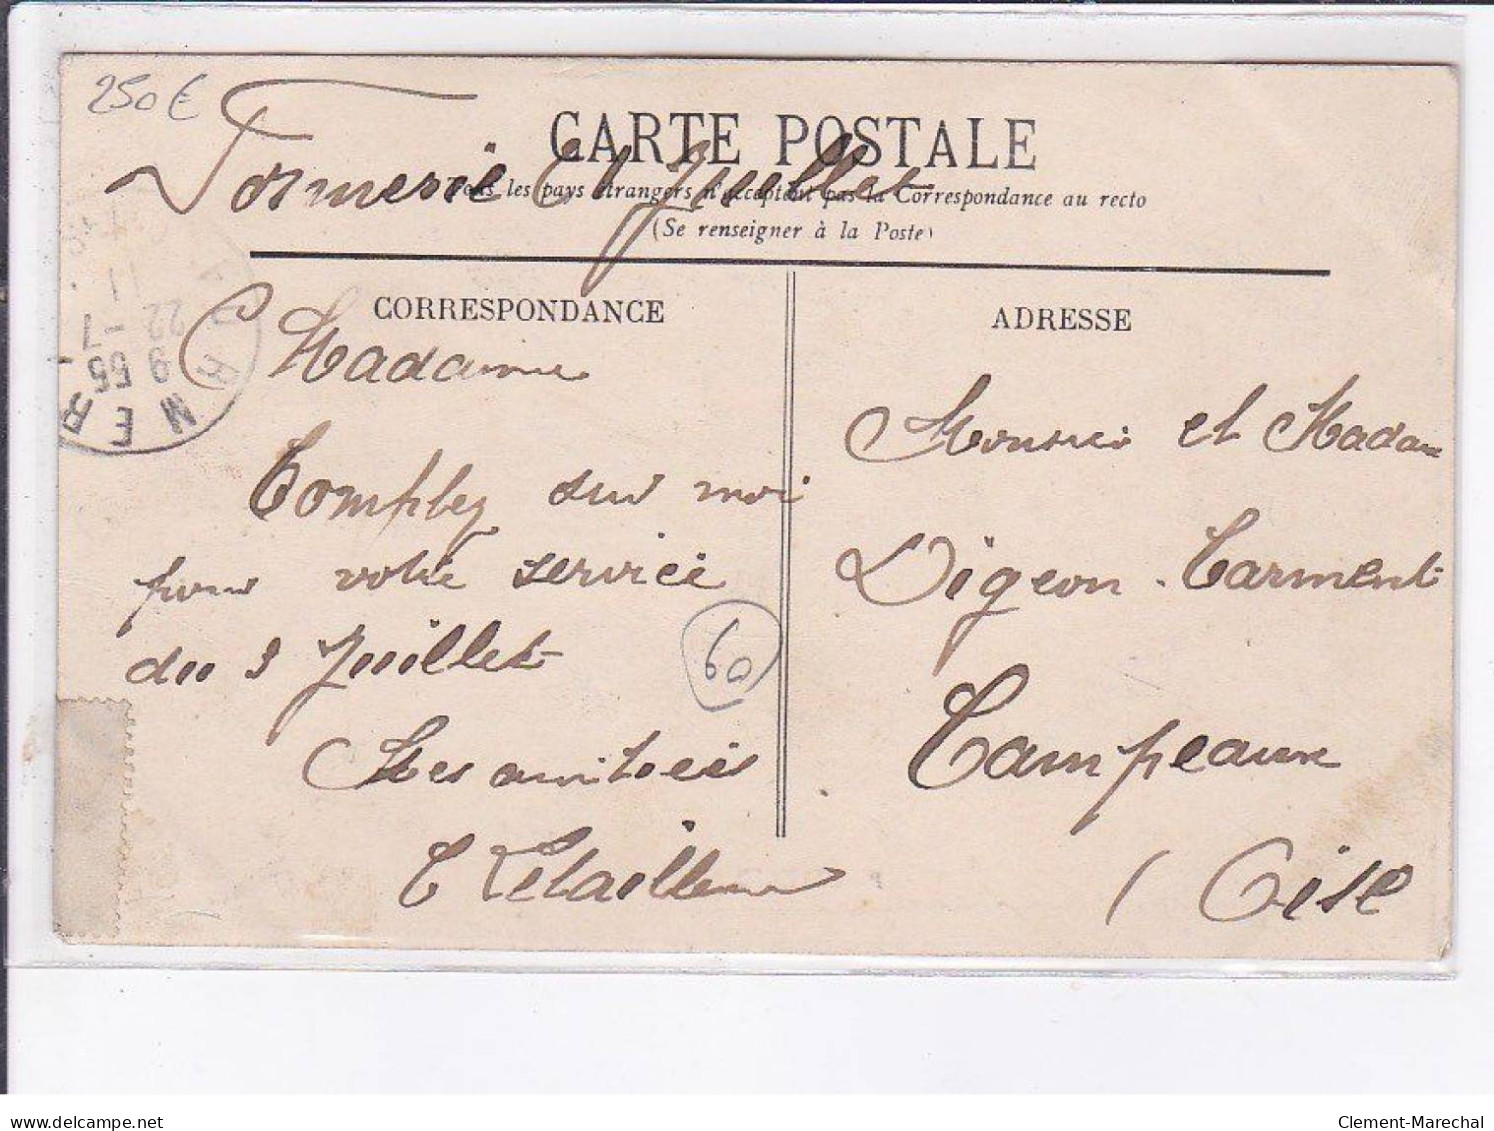 250€
CARTE POSTALE
Formerie Juillet
Tous les pays étrangers n'acceptent pas la Correspondance au recto
(Se renseigner à la Poste)
CORRESPONDANCE
ADRESSE
22 -7
9 55
Madame
Comptez sur moi
pour votre service
du 3 Juillet
60
Mes amitiés
C Letailleur
Monsieur et Madame
Digeon-Carment
Campeaux
(Oise
delcampe.net
Clement-Marechal